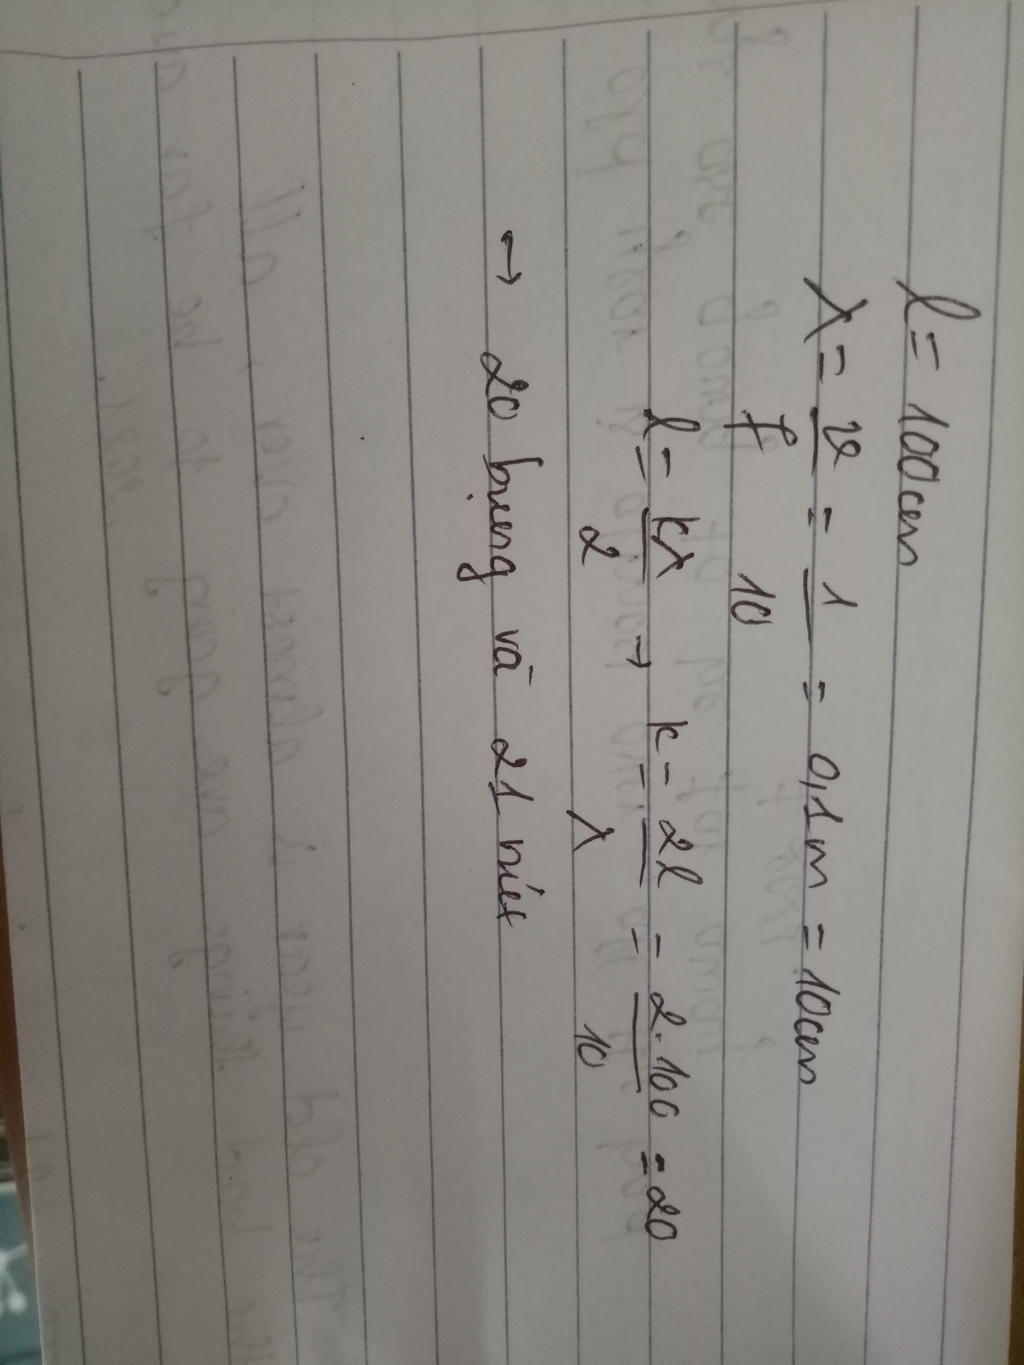 l = 100cm
λ = v/f = 1/10 = 0,1m = 10cm
l = kλ/2 → k = 2l/λ = 2.100/10 = 20
→ 20 bụng và 21 nút